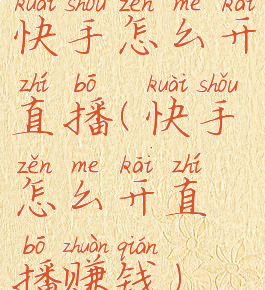 kuài shǒu zěn me kāi
快手怎么开
zhí bō kuài shǒu
直播(快手
zěn me kāi zhí
怎么开直
bō zhuàn qián
播赚钱)